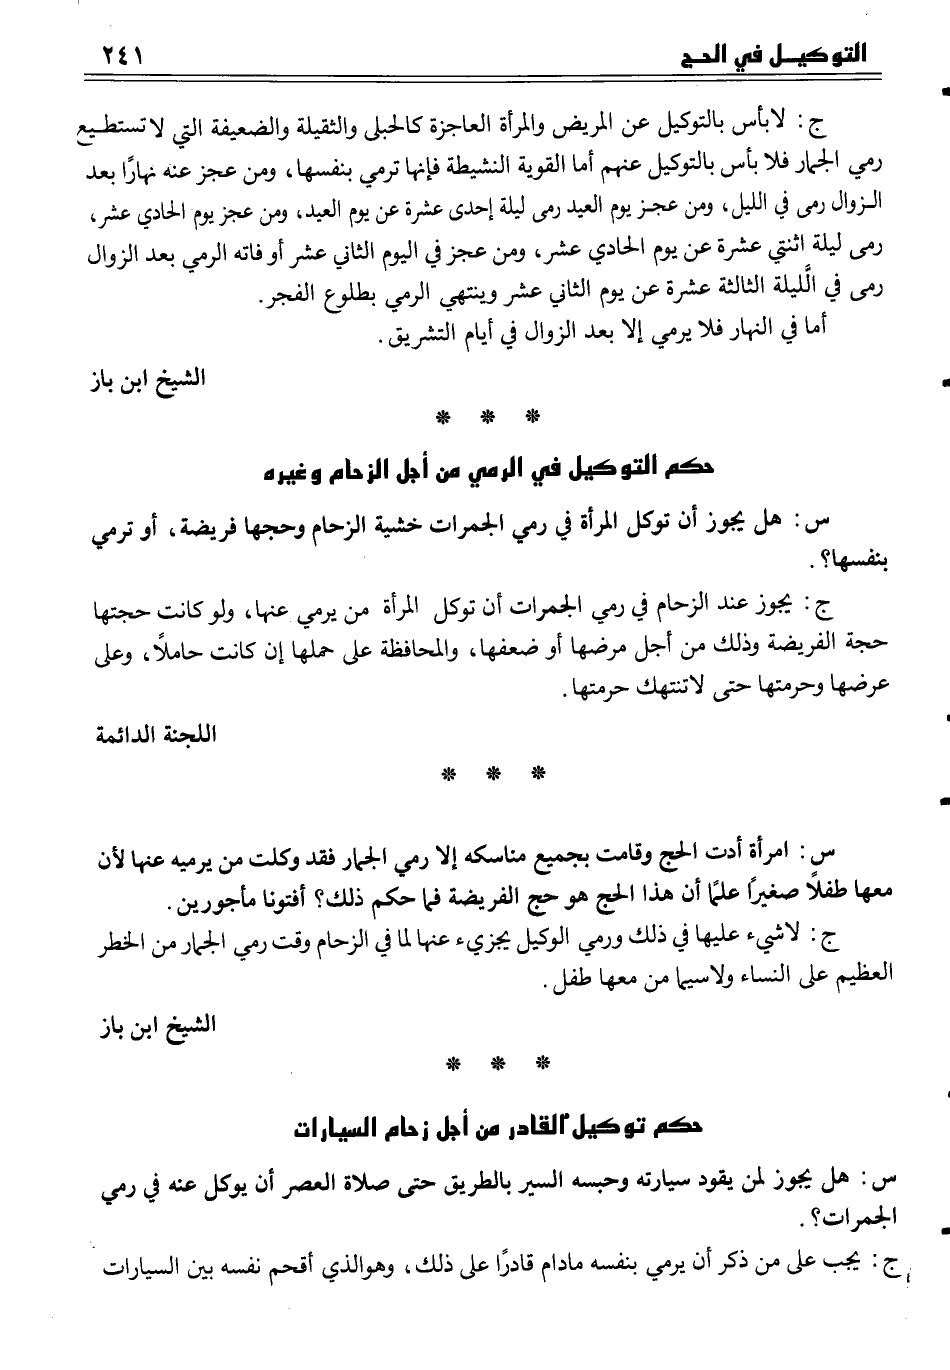 التوكيل في الحج ٢٤١
ج : لابأس بالتوكيل عن المريض والمرأة العاجزة كالحبلى والثقيلة والضعيفة التي لا تستطيع
رمي الجمار فلا بأس بالتوكيل عنهم أما القوية النشيطة فإنها ترمي بنفسها، ومن عجز عنه نهارًا بعد
الزوال رمى في الليل، ومن عجز يوم العيد رمى ليلة إحدى عشرة عن يوم العيد، ومن عجز يوم الحادي عشر،
رمى ليلة اثنتي عشرة عن يوم الحادي عشر، ومن عجز في اليوم الثاني عشر أو فاته الرمي بعد الزوال
رمى في الَّليلة الثالثة عشرة عن يوم الثاني عشر وينتهي الرمي بطلوع الفجر.
أما في النهار فلا يرمي إلا بعد الزوال في أيام التشريق.
الشيخ ابن باز
* * *
حكم التوكيل في الرمي من أجل الزحام وغيره
س : هل يجوز أن توكل المرأة في رمي الجمرات خشية الزحام وحجها فريضة، أو ترمي
بنفسها؟.
ج : يجوز عند الزحام في رمي الجمرات أن توكل المرأة من يرمي عنها، ولو كانت حجتها
حجة الفريضة وذلك من أجل مرضها أو ضعفها، والمحافظة على حملها إن كانت حاملاً، وعلى
عرضها وحرمتها حتى لاتنتهك حرمتها.
اللجنة الدائمة
* * *
س : امرأة أدت الحج وقامت بجميع مناسكه إلا رمي الجمار فقد وكلت من يرميه عنها لأن
معها طفلاً صغيرًا علمًا أن هذا الحج هو حج الفريضة فما حكم ذلك؟ أفتونا مأجورين.
ج : لاشيء عليها في ذلك ورمي الوكيل يجزيء عنها لما في الزحام وقت رمي الجمار من الخطر
العظيم على النساء ولاسيما من معها طفل.
الشيخ ابن باز
* * *
حكم توكيل القادر من أجل زحام السيارات
س : هل يجوز لمن يقود سيارته وحبسه السير بالطريق حتى صلاة العصر أن يوكل عنه في رمي
الجمرات؟.
ج : يجب على من ذكر أن يرمي بنفسه مادام قادرًا على ذلك، وهوالذي أقحم نفسه بين السيارات